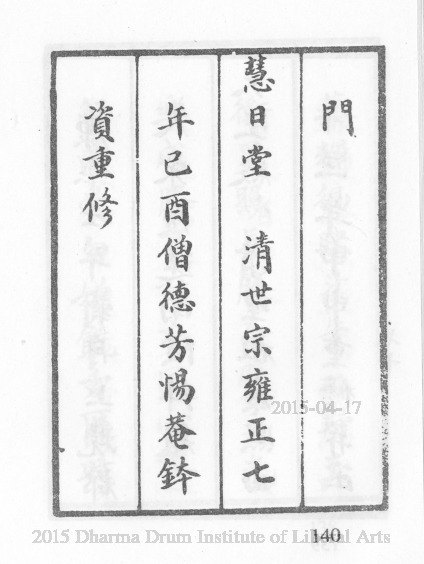 門
慧日堂　清世宗雍正七
年已酉僧德芳惕菴鉢
資重修
2015-04-17
140
2015 Dharma Drum Institute of Liberal Arts